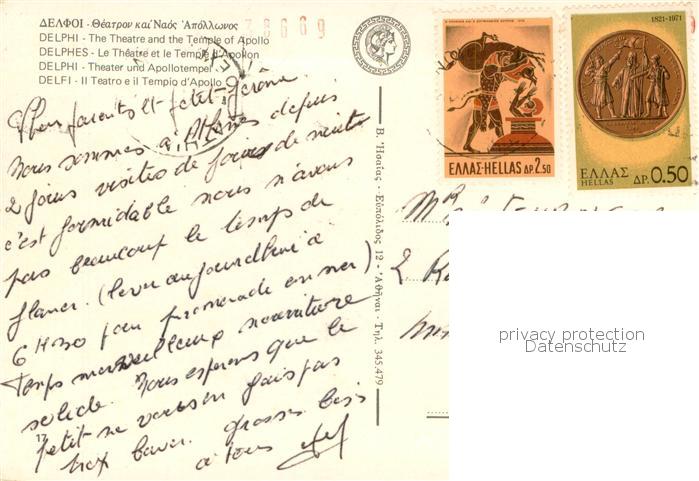 ΔΕΛΦΟΙ - Θέατρον καί Ναός Ἀπόλλωνος
DELPHI - The Theatre and the Temple of Apollo
DELPHES - Le Théâtre et le Temple d'Apollon
DELPHI - Theater und Apollotempel
DELFI - Il Teatro e il Tempio d'Apollo
Chers parents et petit Jérôme
Nous sommes à Athènes depuis
2 jours visites de jour de nuit
c'est formidable nous n'avons
pas beaucoup le temps de
flaner. (lever aujourd'hui à
6 H30 pour promenade en mer)
Temps merveilleux nourriture
solide. Nous espérons que le
petit ne vous en fais pas
trop baver. grosses bises
à tous
17
B. Ἡσαΐας - Εὐπόλιδος 12 - Ἀθῆναι - Τηλ. 345.479
ΕΛΛΑΣ-HELLAS ΔΡ. 2.50
1821-1971
ΕΛΛΑΣ
HELLAS ΔΡ. 0.50
privacy protection
Datenschutz